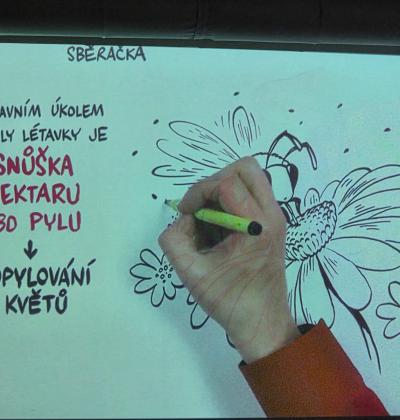 SBĚRAČKA
AVNÍM ÚKOLEM
LY LÉTAVKY JE
SNŮŠKA
EKTARU
BO PYLU
↓
OPYLOVÁNÍ
KVĚTŮ